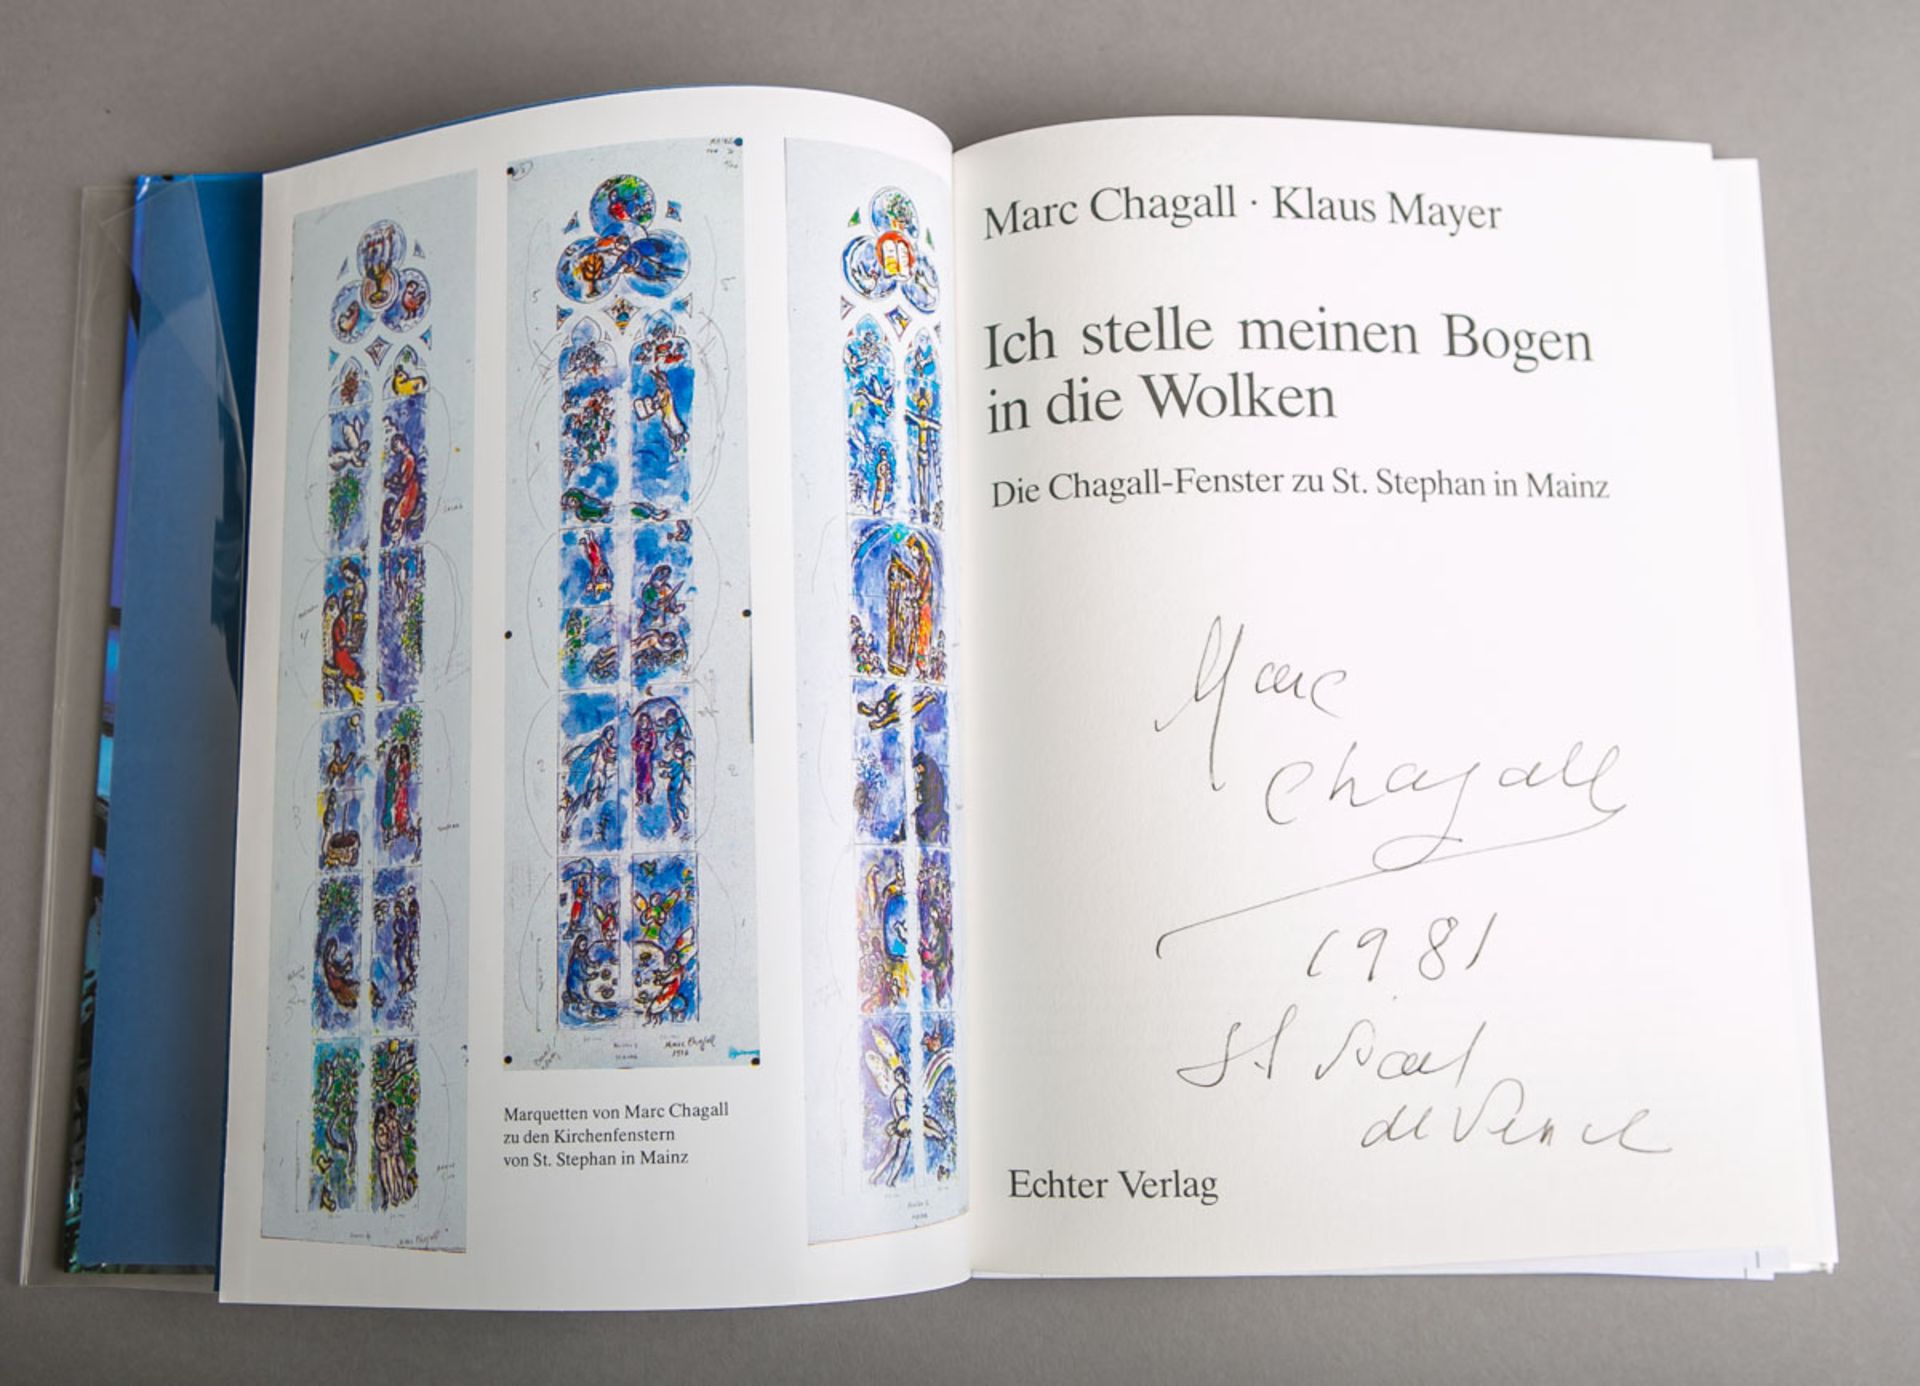 Marquetten von Marc Chagall
zu den Kirchenfenstern
von St. Stephan in Mainz
Marc Chagall
1976
Marc Chagall · Klaus Mayer
Ich stelle meinen Bogen
in die Wolken
Die Chagall-Fenster zu St. Stephan in Mainz
Marc
Chagall
1981
St Paul
de Vence
Echter Verlag